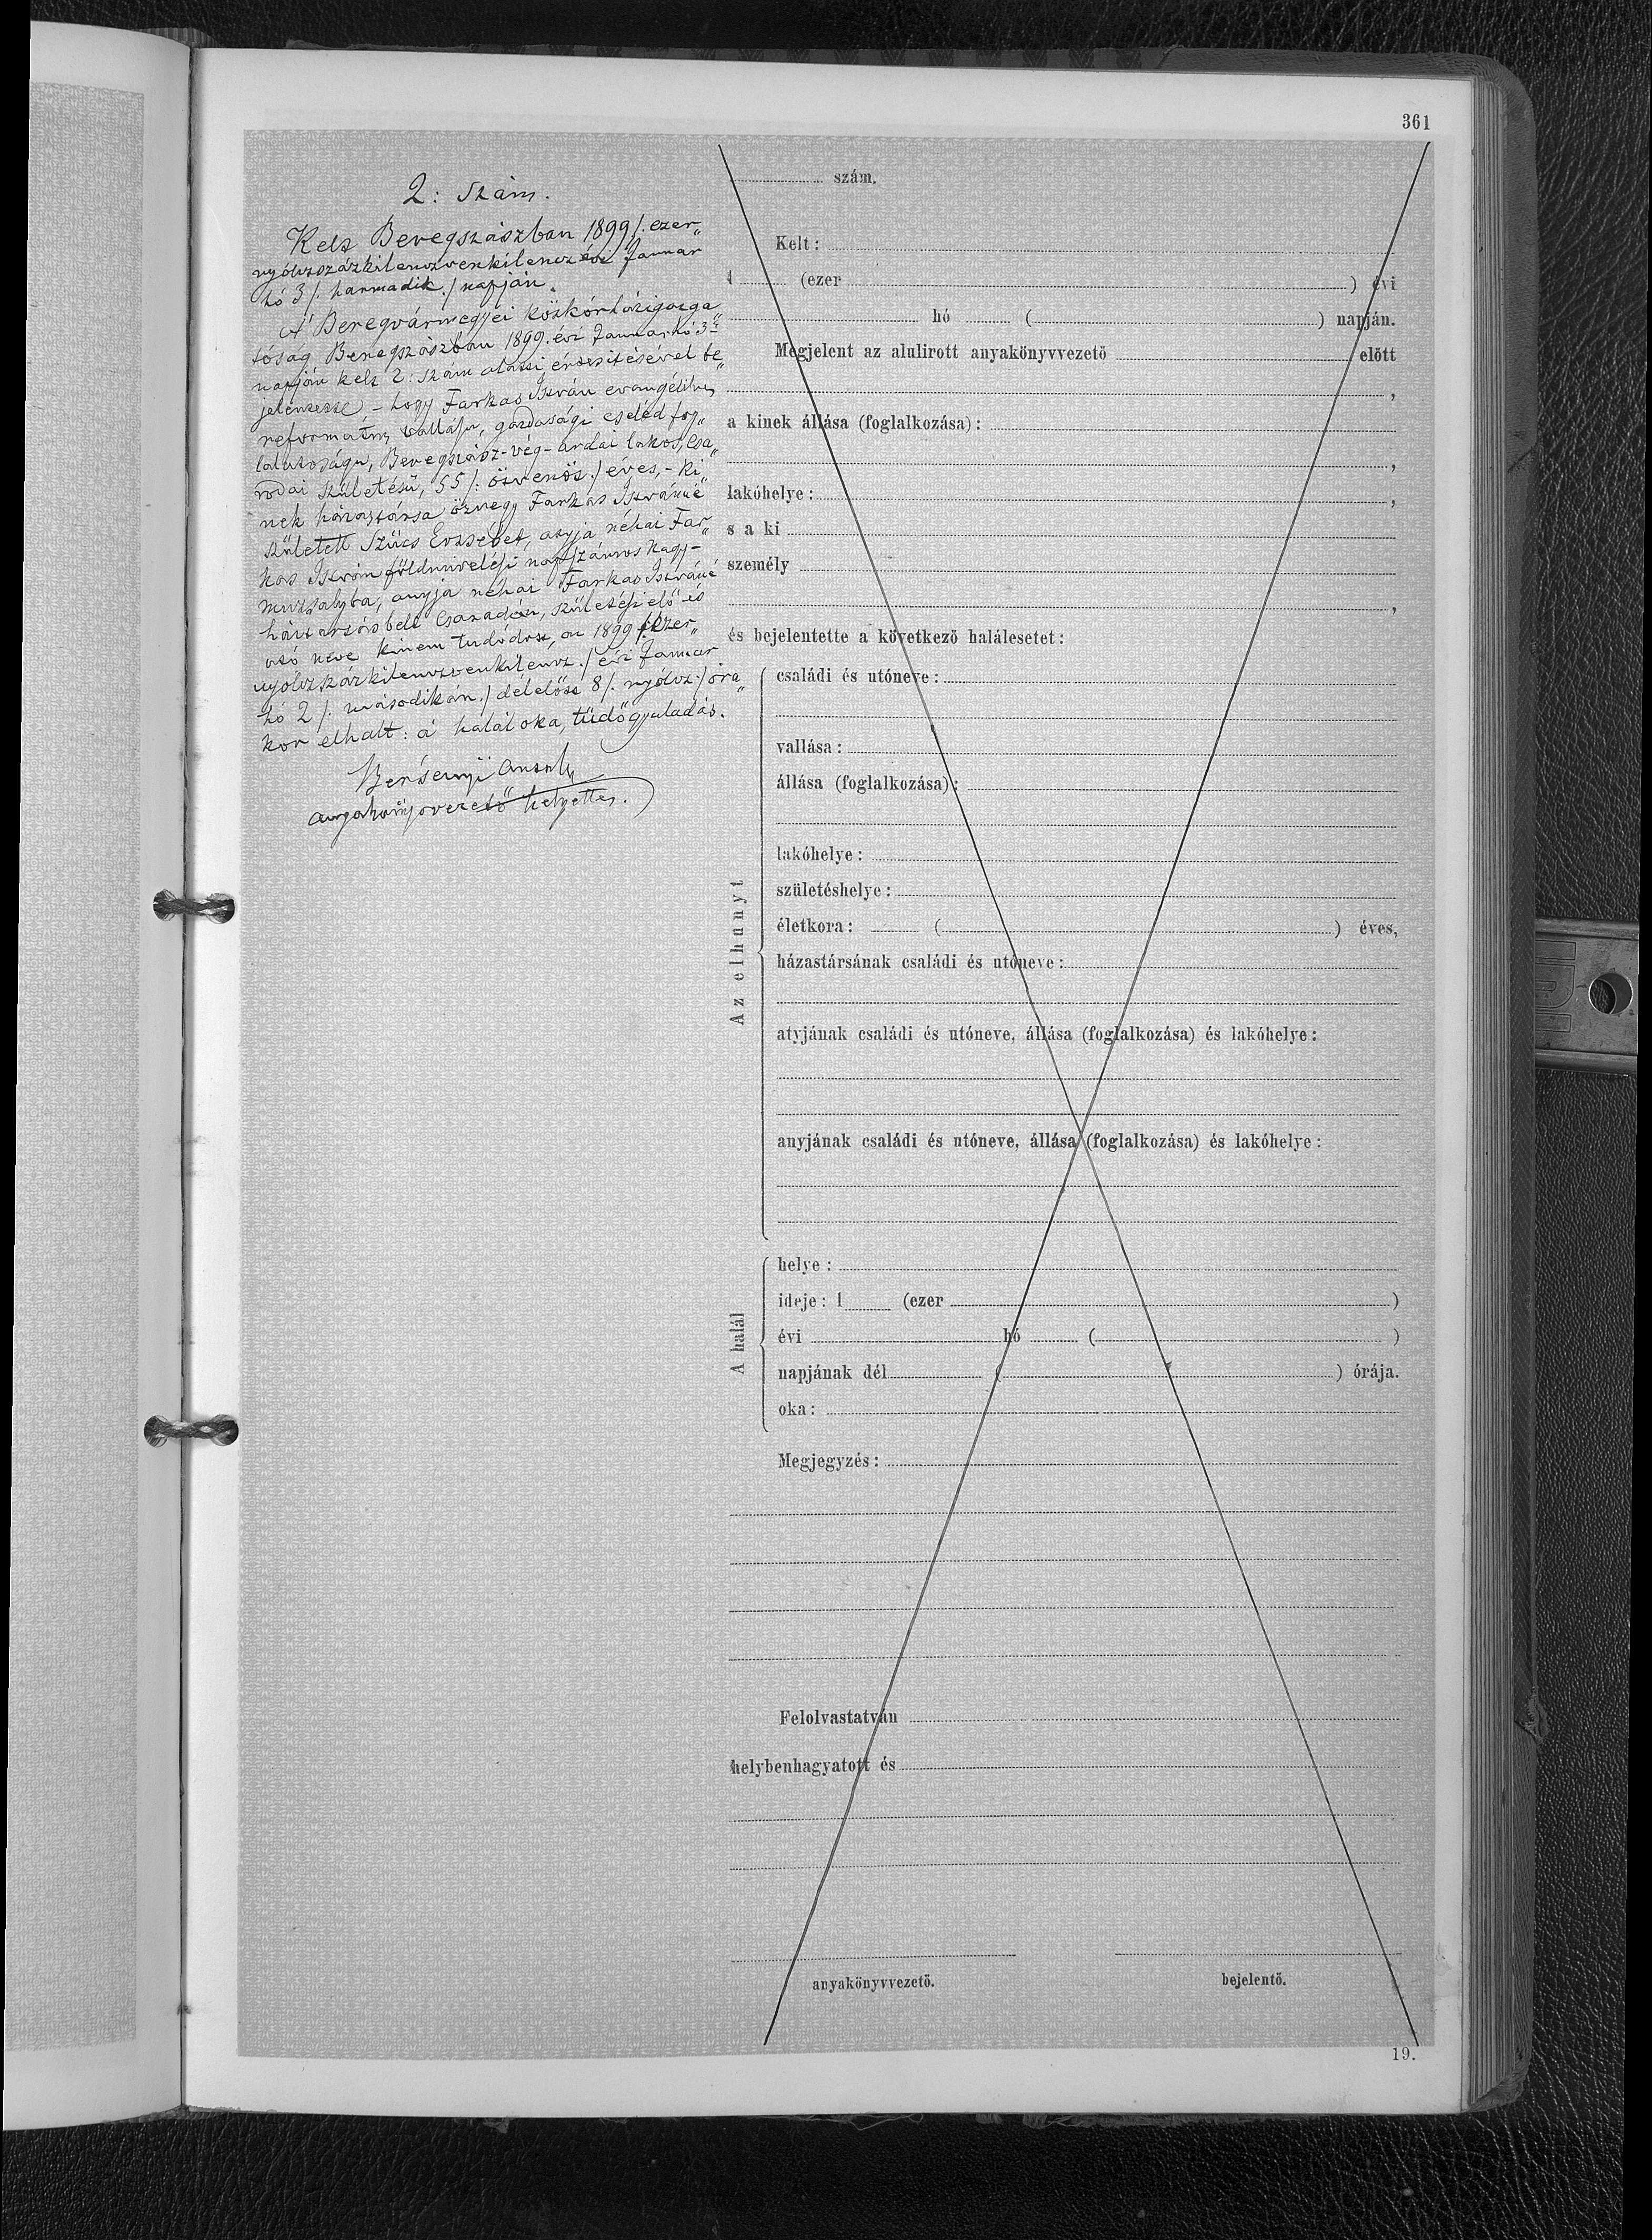 361
2: szám.
Kelt Beregszászban 1899 /: ezer„
nyolczszázkilenczvenkilencz évi Januar
hó 3 /: harmadik :/ napján.
A Beregvármegyei közkórházigazga„
tóság Beregszászban 1899. évi Januar hó 3
napján kelt 2: szám alatti értesitésével be„
jelentette – hogy Farkas István evangélium
reformatus vallásu, gazdasági cseléd fog„
lalatoságu, Beregszász-vég-ardai lakos, Csa„
rodai születésü, 55 /: ötvenöt :/ éves, – ki„
nek házastársa özvegy Farkas Istvánné
született Szücs Erzsébet, atyja néhai Far„
kas István földmivelési napszámos Nagy-
muzsalyba, anyja néhai Farkas Istvánné
háztartásbeli Csarodán, születési elő és
utó neve kinem tudódott, an 1899 /: Ezer„
nyolczszázkilenczvenkilencz :/ évi Januar
hó 2 /: másodikán :/ délelőtt 8 /: nyolcz :/ óra„
kor elhalt: á halál oka, tüdőgyuladás.
Bersenyi
anyakönyvvezető helyettes.
szám.
Kelt:
1 (ezer ) évi
hó ( ) napján.
Megjelent az alulirott anyakönyvvezető előtt
,
a kinek állása (foglalkozása):
,
lakóhelye: ,
s a ki
személy
,
és bejelentette a következő halálesetet:
Az elhunyt
családi és utóneve:
vallása:
állása (foglalkozása):
lakóhelye:
születéshelye:
életkora: ( ) éves,
házastársának családi és utóneve:
atyjának családi és utóneve, állása (foglalkozása) és lakóhelye:
anyjának családi és utóneve, állása (foglalkozása) és lakóhelye:
A halál
helye:
ideje: 1 (ezer )
évi hó ( )
napjának dél ( ) órája.
oka:
Megjegyzés:
Felolvastatván
helybenhagyatott és
anyakönyvvezető. bejelentő.
19.